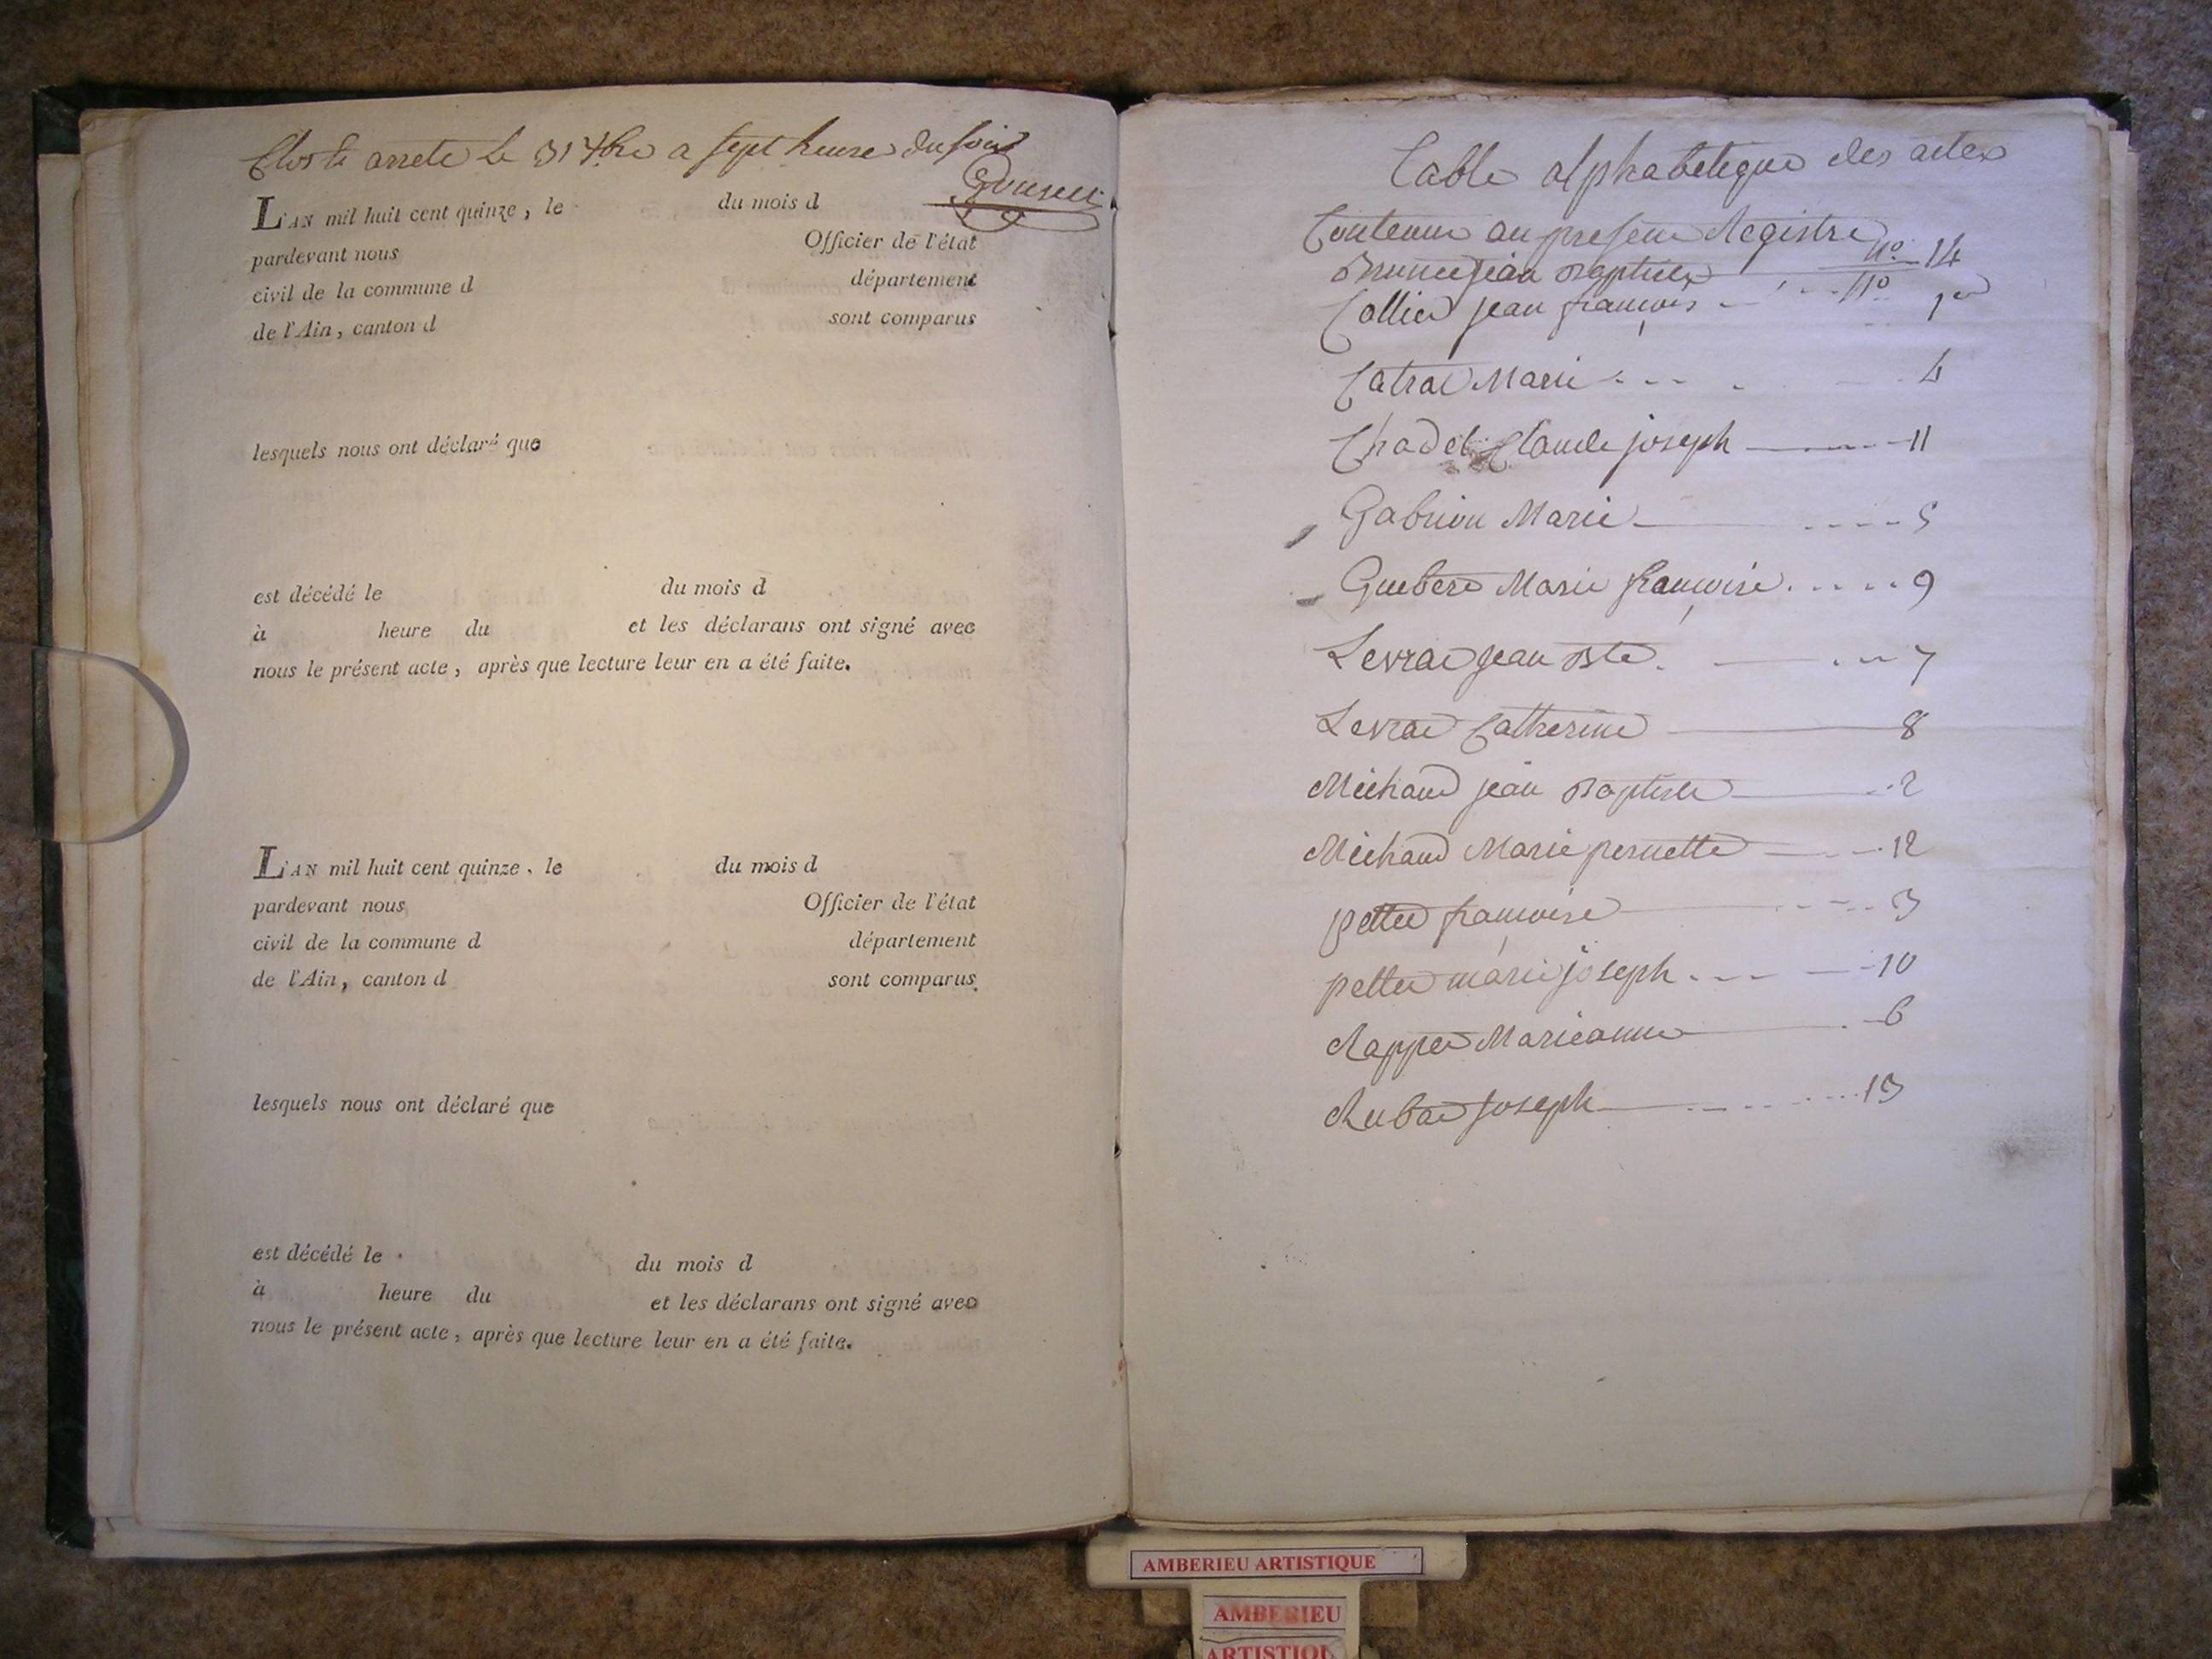 Clos & arrete le 31 Xbre a sept heure du soir
L'AN mil huit cent quinze, le du mois d
pardevant nous Officier de l'état
civil de la commune d département
de l'Ain, canton d sont comparus
lesquels nous ont déclaré que
est décédé le du mois d
à heure du et les déclarans ont signé avec
nous le présent acte, après que lecture leur en a été faite.
L'AN mil huit cent quinze, le du mois d
pardevant nous Officier de l'état
civil de la commune d département
de l'Ain, canton d sont comparus
lesquels nous ont déclaré que
est décédé le du mois d
à heure du et les déclarans ont signé avec
nous le présent acte, après que lecture leur en a été faite.
Table alphabetique des actes
Contenue au present Registre
Brunet jean Baptiste no. 14
Collier jean francois no 1er
Catrat Marie 4
Chadel Claude joseph 11
Gabrion Marie 5
Marie francoise 9
Levrat jean Bte 7
Levrat Catherine 8
Michaud jean Baptiste 2
Michaud Marie pernette 12
pettet francoise 3
pettet marie joseph 10
Rappet Marieanne 6
Rubat joseph 13
AMBERIEU ARTISTIQUE
AMBERIEU